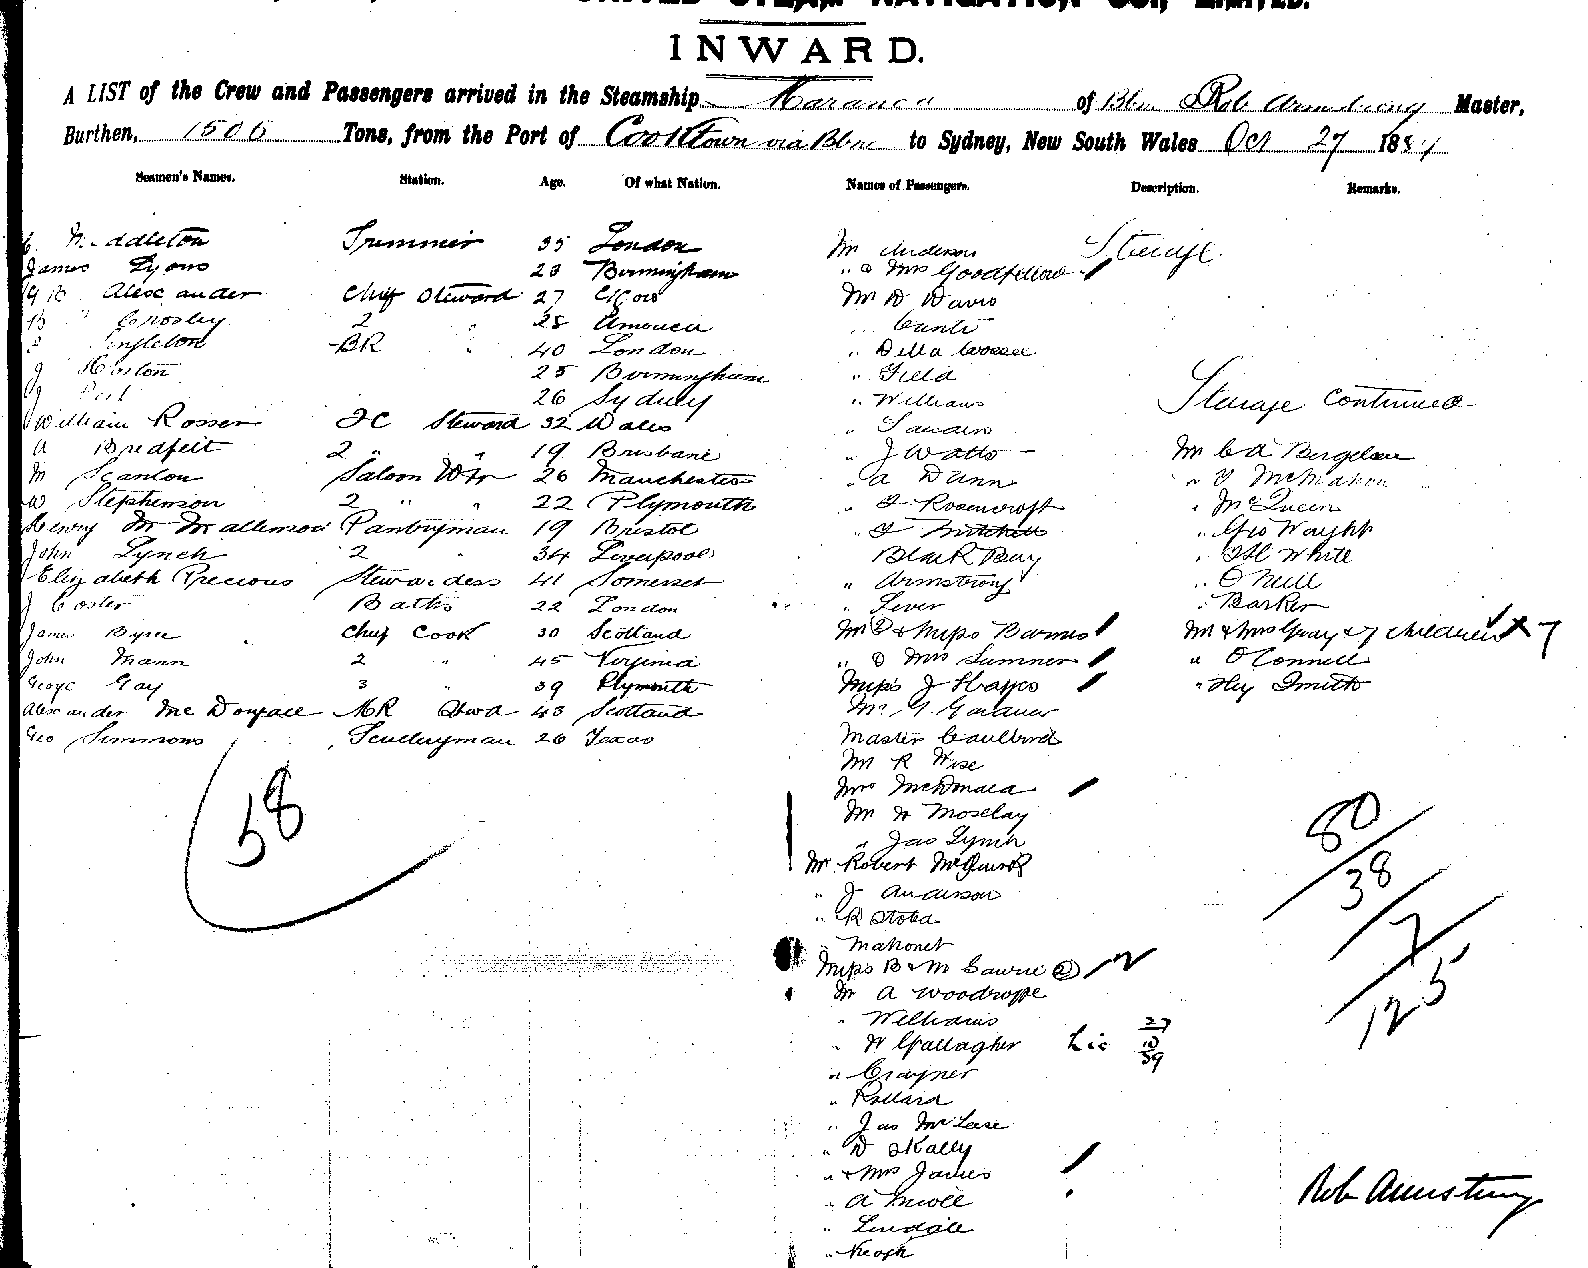 UNITED STEAM NAVIGATION CO., LIMITED.
INWARD.
A LIST of the Crew and Passengers arrived in the Steamship of Bbne Rob Armstrong Master,
Burthen, 1506 Tons, from the Port of Cooktown via Bbne to Sydney, New South Wales Oct 27 188
Seamen's Names. Station. Age. Of what Nation. Names of Passengers. Description. Remarks.
Middleton Trimmer 35 London
James Lyons 23 Birmingham
Alexander Chief Steward 27 Glasgow
Crosby 2 " 28 America
Singleton BR " 40 London
J Hoston 25 Birmingham
26 Sydney
William Rosser FC Steward 32 Wales
A Bredfelt 2 " " 19 Brisbane
M Scanlon Saloon Wtr 26 Manchester
W Stephenson 2 " " 22 Plymouth
Henry M Mallinson Pantryman 19 Bristol
John Lynch 2 " 34 Liverpool
Elizabeth Precious Stewardess 41 Somerset
J Coster Baths 22 London
James Byrne Chief Cook 30 Scotland
John Mann 2 " 45 Virginia
George Gay 3 " 39 Plymouth
Alexander McDougall MR Stwd 43 Scotland
Geo Simmons Sculleryman 26 Texas
58
Mr Anderson Steerage
" & Mrs Goodfellow
Mr D Davis
" Cunte
" Della Cossee
" Field
" Williams
" Sanders
" J Watts
" A Dunn
" F Rosencroft
" F Mitchell
Black Boy
" Armstrong
" Lever
Mr & Miss Barnes
" & Mrs Sumner
Miss J Hayes
Mr G Gardner
Master Caulfield
Mr R Wise
Mrs McDonald
Mr W Moseley
" Jas Lynch
Mr Robert McGuirk
" J Anderson
" R Stoba
" Mahonet
Miss B & M Cawrie 2
Mr A Woodroffe
" Williams
" W Gallagher
" Crayner
" Pollard
" Jas McLese
" D Skally
" & Mrs James
" A Nicoll
" Lindale
" Keogh
Steerage continued
Mr C A Bergelin
" J McMahon
" McQueen
" Geo Wright
" H White
" O'Neill
" Barker
Mr & Mrs Gray & 7 children X 7
" O'Connell
" Hy Smith
80
38
7
125
27
12
39
Rob Armstrong